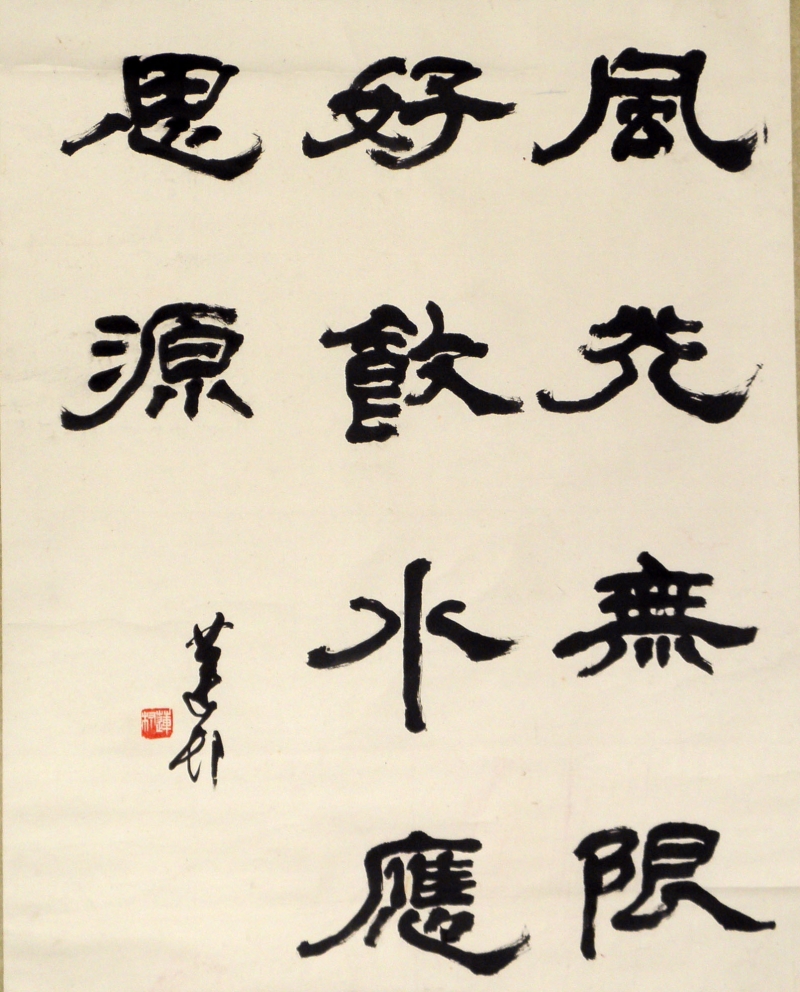 風光無限
好飲水應
思源
蓮邨